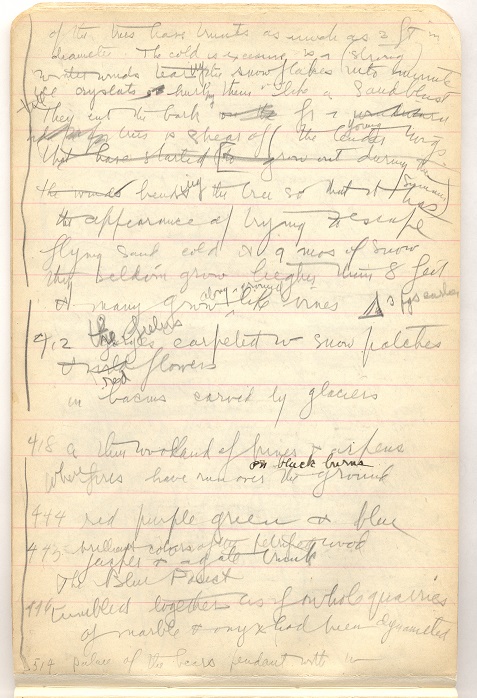 of the trees have trunks as much as 2 ft in
diameter The cold is excessive & a (strong)
winter winds tear up the snowflakes into minute
ice crystals & hurling them like a Sandblast
They cut the bark
trees & shear off the tender young twigs
that have started to grow out during the (Summer)
the winds bending the tree so that it has
the appearance of trying to escape
flying sand cold & 9 mos of snow
they seldom grow higher than 8 feet
& many grow along ground like vines
412 carpeted w snow patches
& red flowers
in basins carved by glaciers
418 a thin woodland of pines & aspens
where fires have run over the ground on black burns
444 red purple green & blue
443 brilliant colours of the petrified wood
jasper & agate trunk
The Blue Forest
446 tumbled together as if whole quarries
of marble & onyx had been dynamited
514 palace of the bears pendant with